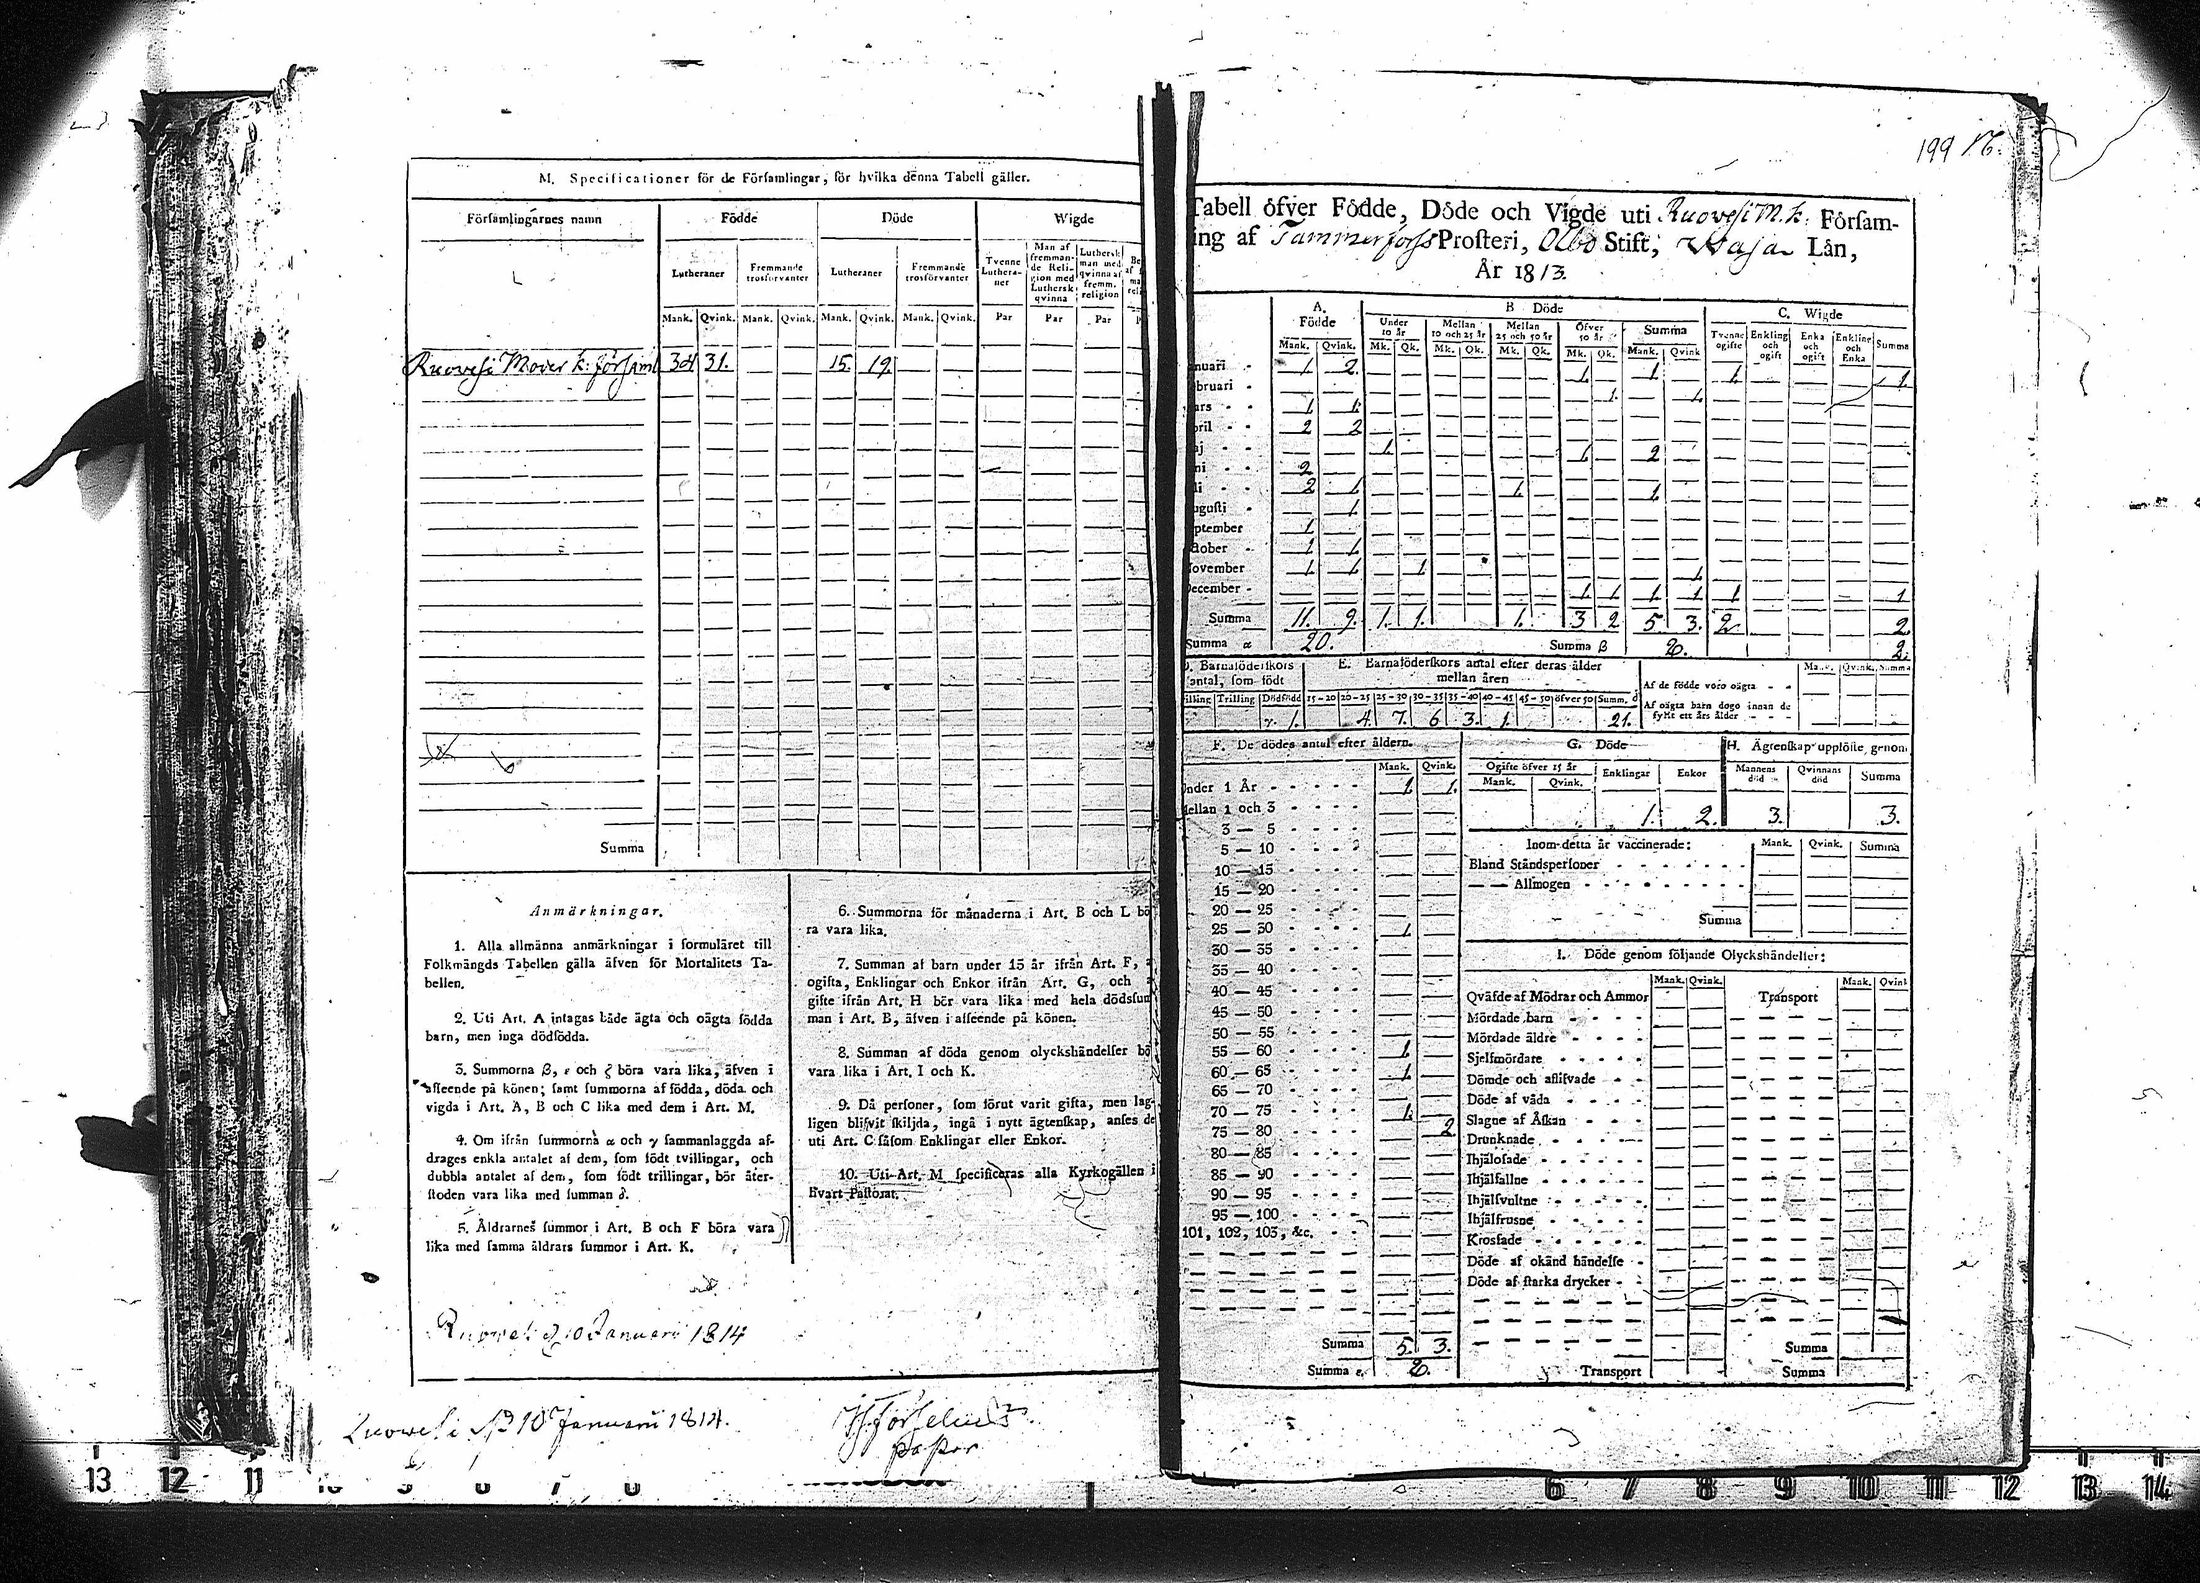 M. Specificationer för de Församlingar, för hvilka denna Tabell gäller.
Församlingarnes namn
Födde
Döde
Wigde
Lutheraner
Fremmande trosförvanter
Lutheraner
Fremmande trosförvanter
Tvenne Lutheraner
Man af fremmande Religion med Luthersk qvinna
Luthersk man med qvinna af fremm. religion
Mank. Qvink. Mank. Qvink. Mank. Qvink. Mank. Qvink. Par Par Par
Ruovesi Moder k: församl 31. 15. 19.
Summa
Anmärkningar.
1. Alla allmänna anmärkningar i formuläret till
Folkmängds Tabellen gälla äfven för Mortalitets Ta-
bellen.
2. Uti Art. A intagas både ägta och oägta födda
barn, men inga dödfödda.
3. Summorna β, ε och ζ böra vara lika, äfven i
afseende på könen; samt summorna af födda, döda och
vigda i Art. A, B och C lika med dem i Art. M.
4. Om ifrån summorna α och γ sammanlaggda af-
drages enkla antalet af dem, som födt tvillingar, och
dubbla antalet af dem, som födt trillingar, bör åter-
stoden vara lika med summan δ.
5. Åldrarnes summor i Art. B och F böra vara
lika med samma åldrars summor i Art. K.
6. Summorna för månaderna i Art. B och L bö
ra vara lika.
7. Summan af barn under 15 år ifrån Art. F,
ogifta, Enklingar och Enkor ifrån Art. G, och
gifte ifrån Art. H bör vara lika med hela dödsfum
man i Art. B, äfven i afseende på könen.
8. Summan af döda genom olyckshändelser bö
vara lika i Art. I och K.
9. Då personer, som förut varit gifta, men lag-
ligen blifvit skiljda, ingå i nytt ägtenskap, anses de
uti Art. C såsom Enklingar eller Enkor.
10. Uti Art. M specificeras alla Kyrkogällen i
hvart Pastorat.
Ruovesi d 10 Januarii 1814
Ruovesi d 10 Januarii 1814.
199
Tabell öfver Födde, Döde och Vigde uti Ruovesi M.k. Försam-
ing af Tammerforss Prosteri, Åbo Stift, Wasa Län,
År 1813.
A. Födde
B Döde
C. Wigde
Under 10 år
Mellan 10 och 25 år
Mellan 25 och 50 år
Öfver 50 år
Summa
Tvenne ogifte
Enkling och ogift
Enka och ogift
Enkling och Enka
Summa
Mank. Qvink. Mk. Qk. Mk. Qk. Mk. Qk. Mk. Qk. Mank. Qvink
nuari 1. 2. 1. 1. 1. 1.
bruari 1. 1.
ars 1. 1.
pril 2 2
aj 1. 1. 2
ni 2
li 2 1. 1. 1.
ugusti 1.
ptember 1.
ktober 1. 1.
November 1. 1. 1. 1.
December 1. 1. 1. 1. 1. 1
Summa 11. 9. 1. 1. 1. 3 2 5. 3. 2 2.
Summa α 20. Summa β 8. 2.
D. Barnaföderskors antal, som födt
E. Barnaföderskors antal efter deras ålder mellan åren
illing Trilling Dödfödd 15-20 20-25 25-30 30-35 35-40 40-45 45-50 öfver 50 Summ. δ
γ. 1. 4. 7. 6 3. 1. 21.
Mank. Qvink. Summa
Af de födde voro oägta
Af oägta barn dogo innan de
fyllt ett års ålder
F. De dödes antal efter åldern.
Mank. Qvink.
Under 1 År 1. 1.
Mellan 1 och 3
3 — 5
5 — 10
10 — 15
15 — 20
20 — 25
25 — 30 1.
30 — 35
35 — 40
40 — 45
45 — 50
50 — 55
55 — 60 1.
60 — 65 1.
65 — 70
70 — 75 1.
75 — 80 2
80 — 85
85 — 90
90 — 95
95 — 100
101, 102, 103, &c.
Summa 5. 3.
Summa ε. 8.
G. Döde
Ogifte öfver 15 år
Mank. Qvink.
Enklingar
Enkor
1. 2.
H. Ägtenskap upplöste, genom
Mannens död
Qvinnans död
Summa
3. 3.
Inom detta år vaccinerade: Mank. Qvink. Summa
Bland Ståndspersoner
— — Allmogen
Summa
I. Döde genom följande Olyckshändelser:
Mank. Qvink. Mank. Qvink
Qväfde af Mödrar och Ammor
Transport
Mördade barn
Mördade äldre
Sjelfmördare
Dömde och aflifvade
Döde af våda
Slagne af Åskan
Drunknade
Ihjälosade
Ihjälfallne
Ihjälsvultne
Ihjälfrusne
Krossade
Döde af okänd händelse
Döde af starka drycker
Summa
Transport
Summa
13 12 11
6 7 8 9 10 11 12 13 14